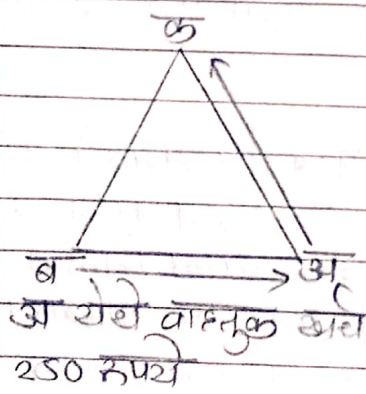 क
ब अ
अ येथे वाहतुक खर्च
250 रुपये